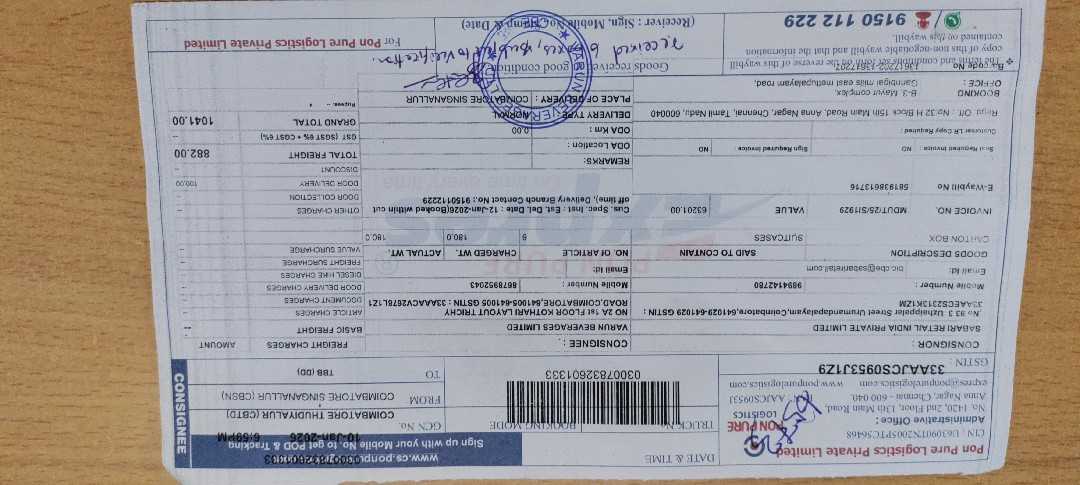 Pon Pure Logistics Private Limited
CIN : U63090TN2005PTC56468
Administrative Office :
No. 1420, 2nd Floor, 13th Main Road,
Anna Nagar, Chennai - 600 040.
www.ponpurelogistics.com
GSTIN : 33AAJCS0953J1Z9
PON PURE
LOGISTICS
DATE & TIME
10-Jan-2026 6:59PM
www.cs.ponpure
Sign up with your Mobile No. to get POD & Tracking
TRUCK No.
BOOKING MODE
GCN No.
03007832601333
COIMBATORE THUDIYALUR (CBTD)
FROM
COIMBATORE SINGANALLUR (CBSN)
TO
TBB (DD)
CONSIGNEE
CONSIGNOR :
SABARI RETAIL INDIA PRIVATE LIMITED
Street Urumandapalayam,Coimbatore,641029-641029 GSTIN :
33AAECS2313K1ZM
Mobile Number : 9894142780
Email Id:
CONSIGNEE :
VARUN BEVERAGES LIMITED
NO 2A 1st FLOOR KOTHARI LAYOUT TRICHY
ROAD,COIMBATORE,641005-641005 GSTIN : 33AAACV2678L1Z1
Mobile Number : 8678952043
Email Id:
FREIGHT CHARGES
AMOUNT
BASIC FREIGHT
ARTICLE CHARGES
DOCUMENT CHARGES
DOOR DELIVERY CHARGES
DIESEL HIKE CHARGES
FREIGHT SURCHARGE
VALUE SURCHARGE
OTHER CHARGES
DOOR COLLECTION
DOOR DELIVERY 100.00
DISCOUNT
TOTAL FREIGHT 882.00
GST (SGST 6% + CGST 6%)
GRAND TOTAL 1041.00
Rupees
GOODS DESCRIPTION
SAID TO CONTAIN
NO. Of ARTICLE
CHARGED WT.
ACTUAL WT.
CARTON BOX
SUITCASES
6
180.0
180.0
INVOICE NO. MDUT/25/SI1929
VALUE 63201.00
Cus. Spec. Inst : Est. Del. Date : 12-Jan-2026(Booked within cut
off time), Delivery Branch Contact No.: 9150112229
E-Waybill No 581938613716
REMARKS:
Seal Required Invoice : NO
Sign Required Invoice : NO
Customer LR Copy Required :
ODA Location :
ODA Km : 0.00
Regd. Off : No 32 H Block 15th Main Road, Anna Nagar, Chennai, Tamil Nadu, 600040
DELIVERY TYPE : NORMAL
PLACE OF DELIVERY : COIMBATORE SINGANALLUR
BOOKING
OFFICE :
B-3, Mayur complex,
mills east methupalayam road,
Barcode No
The terms and conditions set forth on the reverse of this waybill
copy of this non-negotiable waybill and that the information
contained on this waybill.
9150 112 229
Goods received in good condition
received 6 boxes, subject to verification.
(Receiver : Sign. Mobile No. Stamp & Date)
For Pon Pure Logistics Private Limited